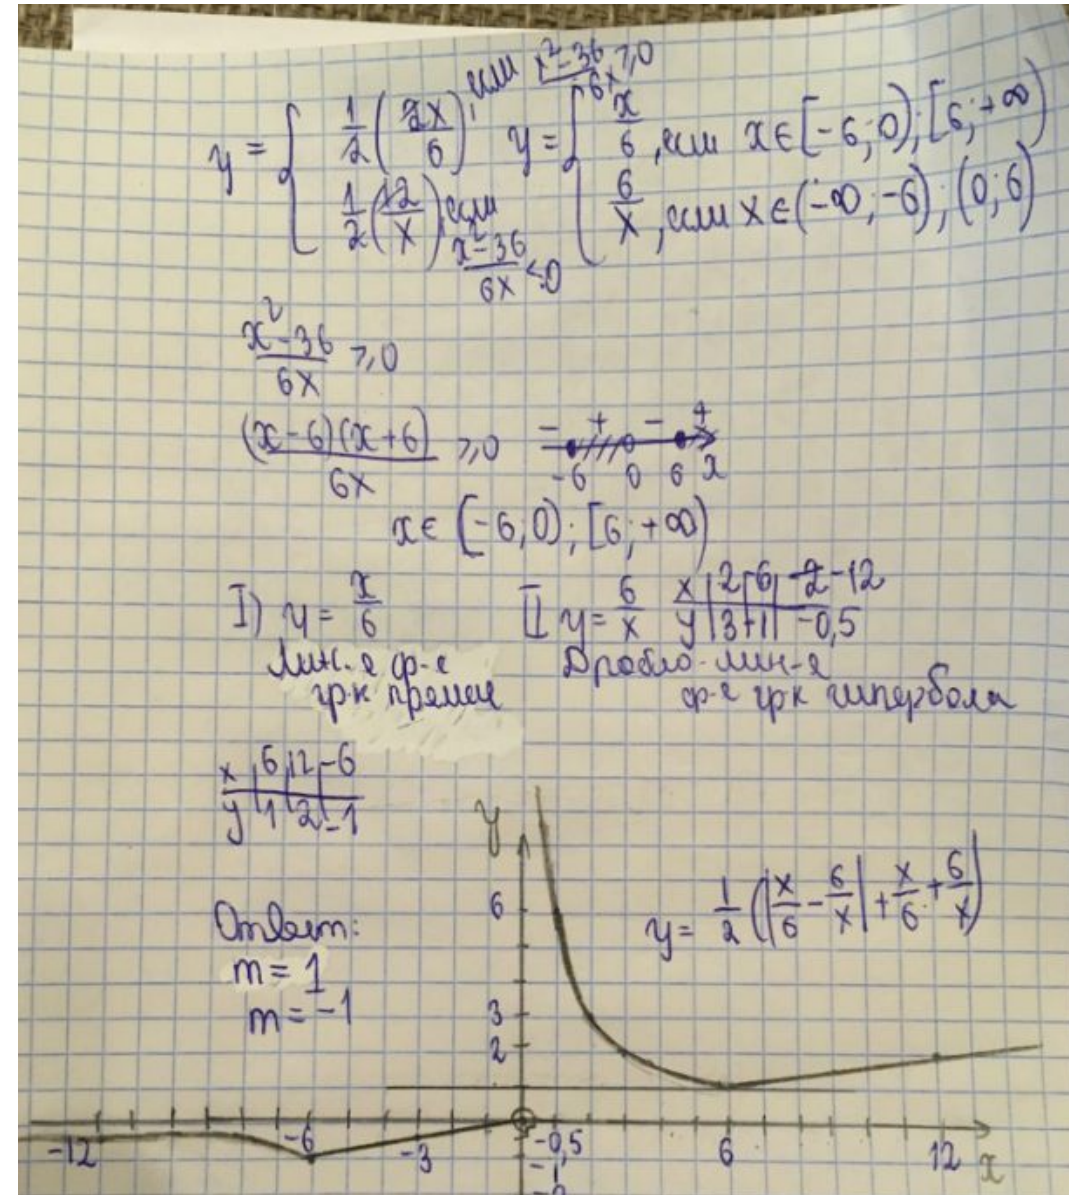 y = { 1/2 (2x/6), если x²-36/6x ≥ 0
1/2 (12/x), если x²-36/6x < 0
y = { x/6, если x ∈ [-6; 0); [6; +∞)
6/x, если x ∈ (-∞; -6); (0; 6)
x²-36/6x ≥ 0
(x-6)(x+6)/6x ≥ 0
- + - +
-6 0 6 x
x ∈ [-6; 0); [6; +∞)
I) y = x/6
Лин-я ф-я
гр-к прямая
x 6 12 -6
y 1 2 -1
II y = 6/x
x 2 6 -12
y 3 +1 -0,5
Дробно-лин-я
ф-я гр к гипербола
Ответ:
m = 1
m = -1
y = 1/2 (|x/6 - 6/x| + x/6 + 6/x)
y
6
3
2
-12 -6 -3 -0,5 6 12 x
-1